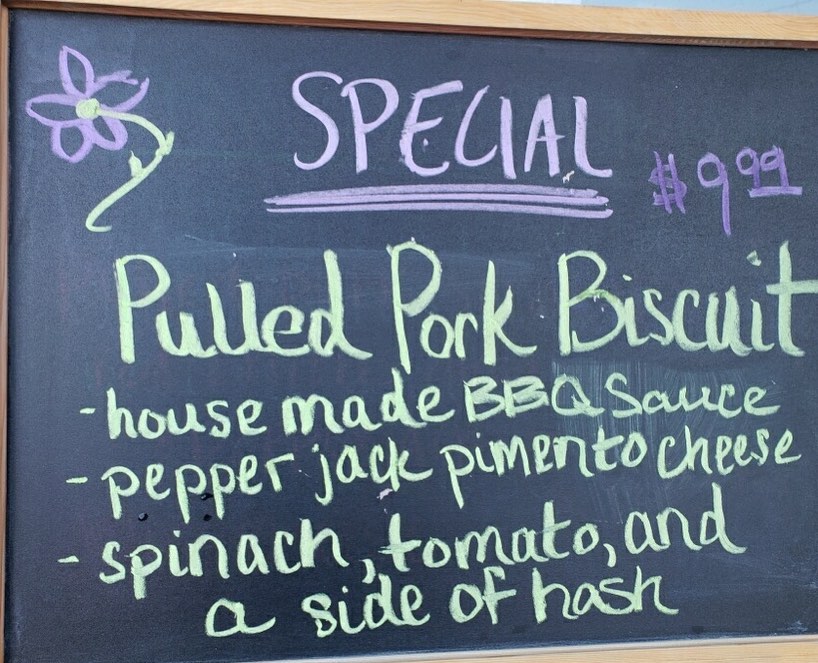 SPECIAL
$9 99
Pulled Pork Biscuit
-house made BBQ Sauce
-pepper jack pimento cheese
-spinach, tomato, and
a side of hash